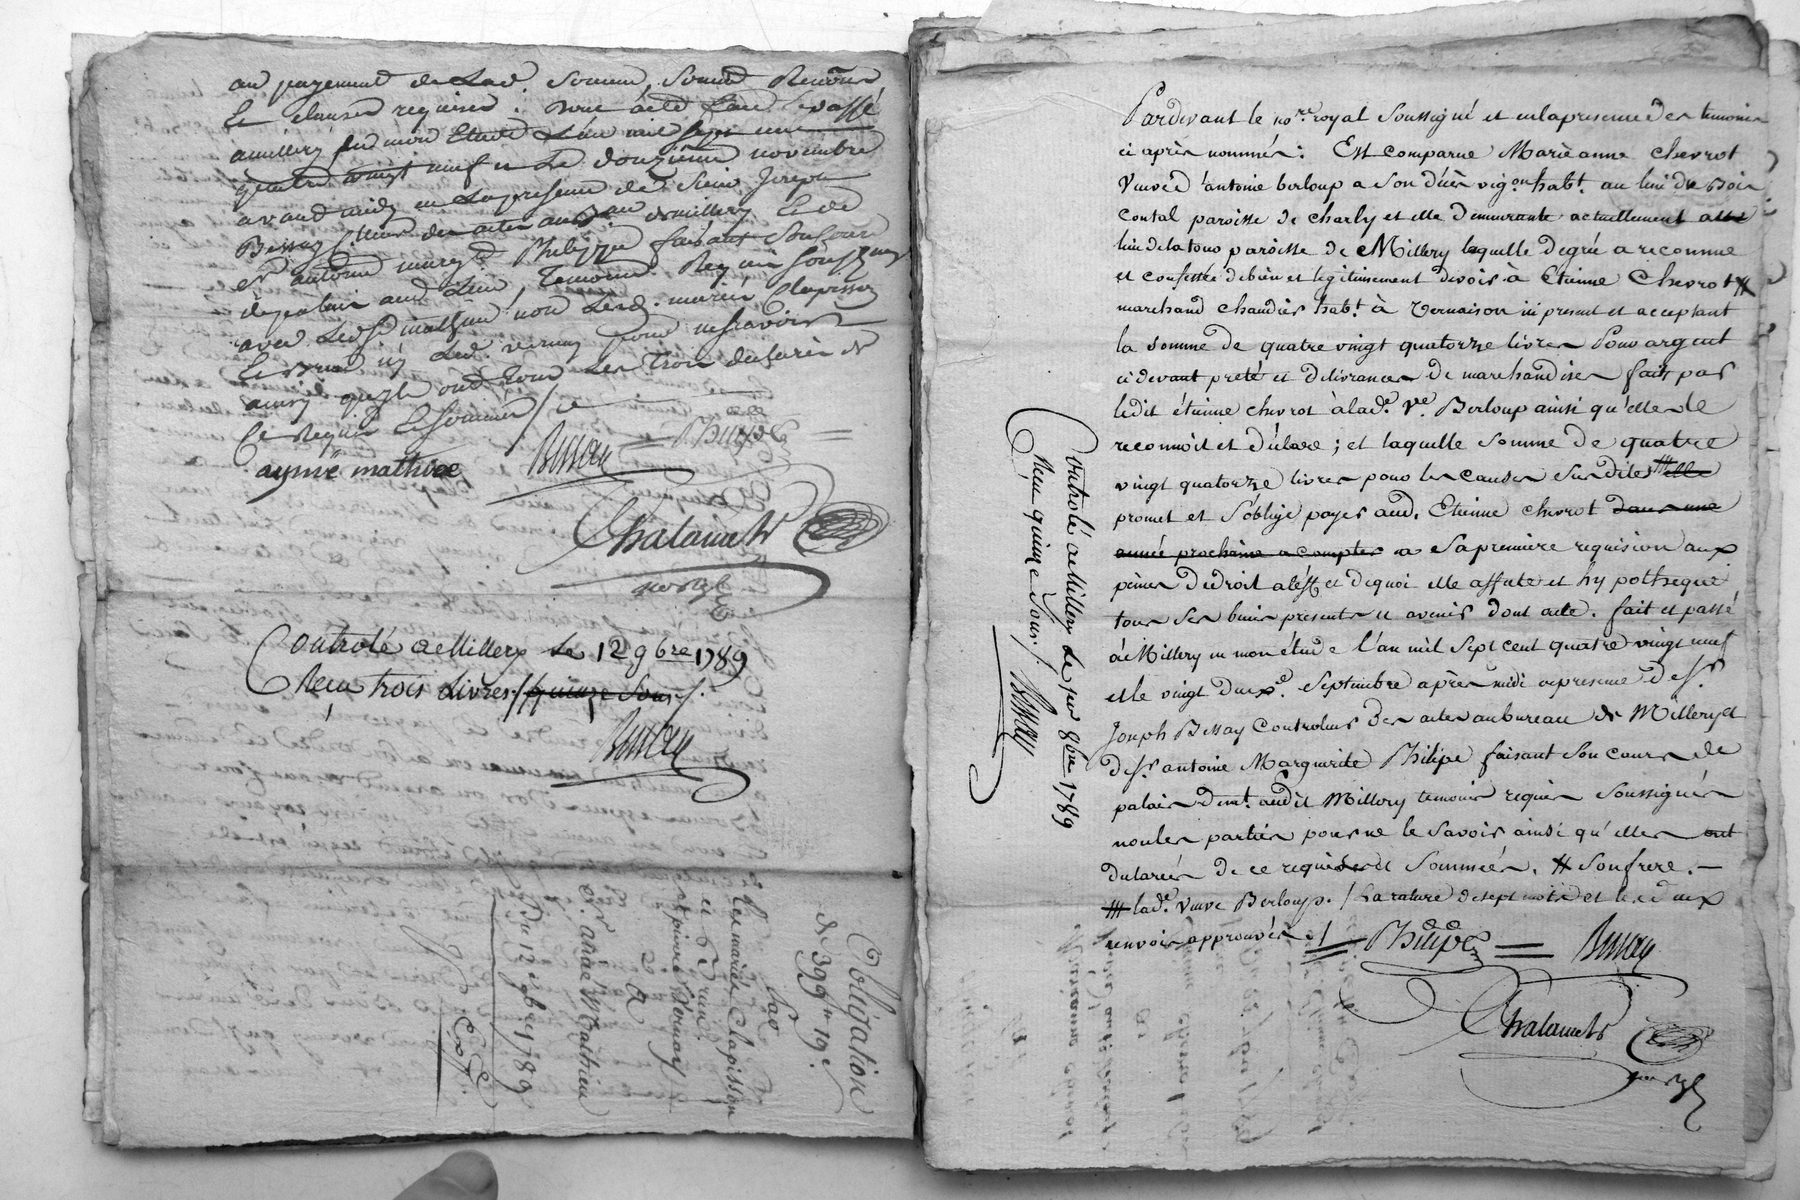 au payement de Lad. Somme, Soumis Renon
Et clauses requises. Dont acte fait Et passé
a millery en mon Etude L'an mil Sept cent
quatre vingt neuf et Le douzieme novembre
avant midy en La presence de Sieur Joseph
Bessay C.lleur des actes au B.au de millery Et de
Sr antoine marg.te Philippe faisant Son cours
de palais aud. Lieu, Temoins Requis Soussignes
avec Led. Sr mathieu non Lesd. mariés Clapisson
Et ny Led. vernay pour ne Scavoir
ainsy qu'ils ont Tous Les Trois declarés de
Ce Requis Et Sommés
aymé mathieu Bessay Philipe
Chalamel
Controlé a Millery le 12 9bre 1789
Recu trois Livres quinze Sous
Bessay
Obligation
de 399# 19s.
Par
Les mariés Clapisson
et pierre Vernay
A
Sr. aimé Mathieu
Du 12 9bre 1789
Exp.
Pardevant le no.re royal Soussigné et en la presence des temoins
ci après nommés: Est comparue Marieanne Chevrot
Veuve d'antoine berloup a Son décès vig.on hab.t au lieu du Bois
contal paroisse de charly et elle demeurante actuellement au
lieu de la tour paroisse de Millery laquelle de gré a reconnue
et confessée debien et legitimement devoir a Etienne Chevrot #
marchand chandier hab.t à Vernaison ici present et acceptant
la Somme de quatre vingt quatorze livres Pour argent
ci devant preté et delivrances de marchandises faits par
ledit étienne chevrot à lad.e V.e Berloup ainsi qu'elle le
reconnoit et déclare; et laquelle Somme de quatre
vingt quatorze livres pour les causes Susdites ### elle
promet et S'oblige payer aud. Etienne chevrot dans une
année prochaine a compter a Sa première requision aux
peines de droit a l'éff.t de quoi elle affecte et hypotheque
tous Ses biens presents et avenir dont acte. fait et passé
à Millery en mon étude l'an mil Sept cent quatre vingt neuf
et le vingt deux.e Septembre après midi en presence de Sr.
Joseph Bessay Controleur des actes au bureau de Millery et
de Sr. antoine Marguerite Philipe faisant Son cours de
palais dem.t audit Millery temoins requis Soussignés
non les parties pour ne le Savoir ainsi qu'elles ont
declarées de ce requises et Sommées. # Son frere. —
### lad.e Veuve Berloup. / La rature de sept mots et les deux
renvois approuvés ./
Philipe Bessay
Chalamel
Controlé a Millery Le 1er 8bre 1789
Recu quinze Sous ./. Bessay